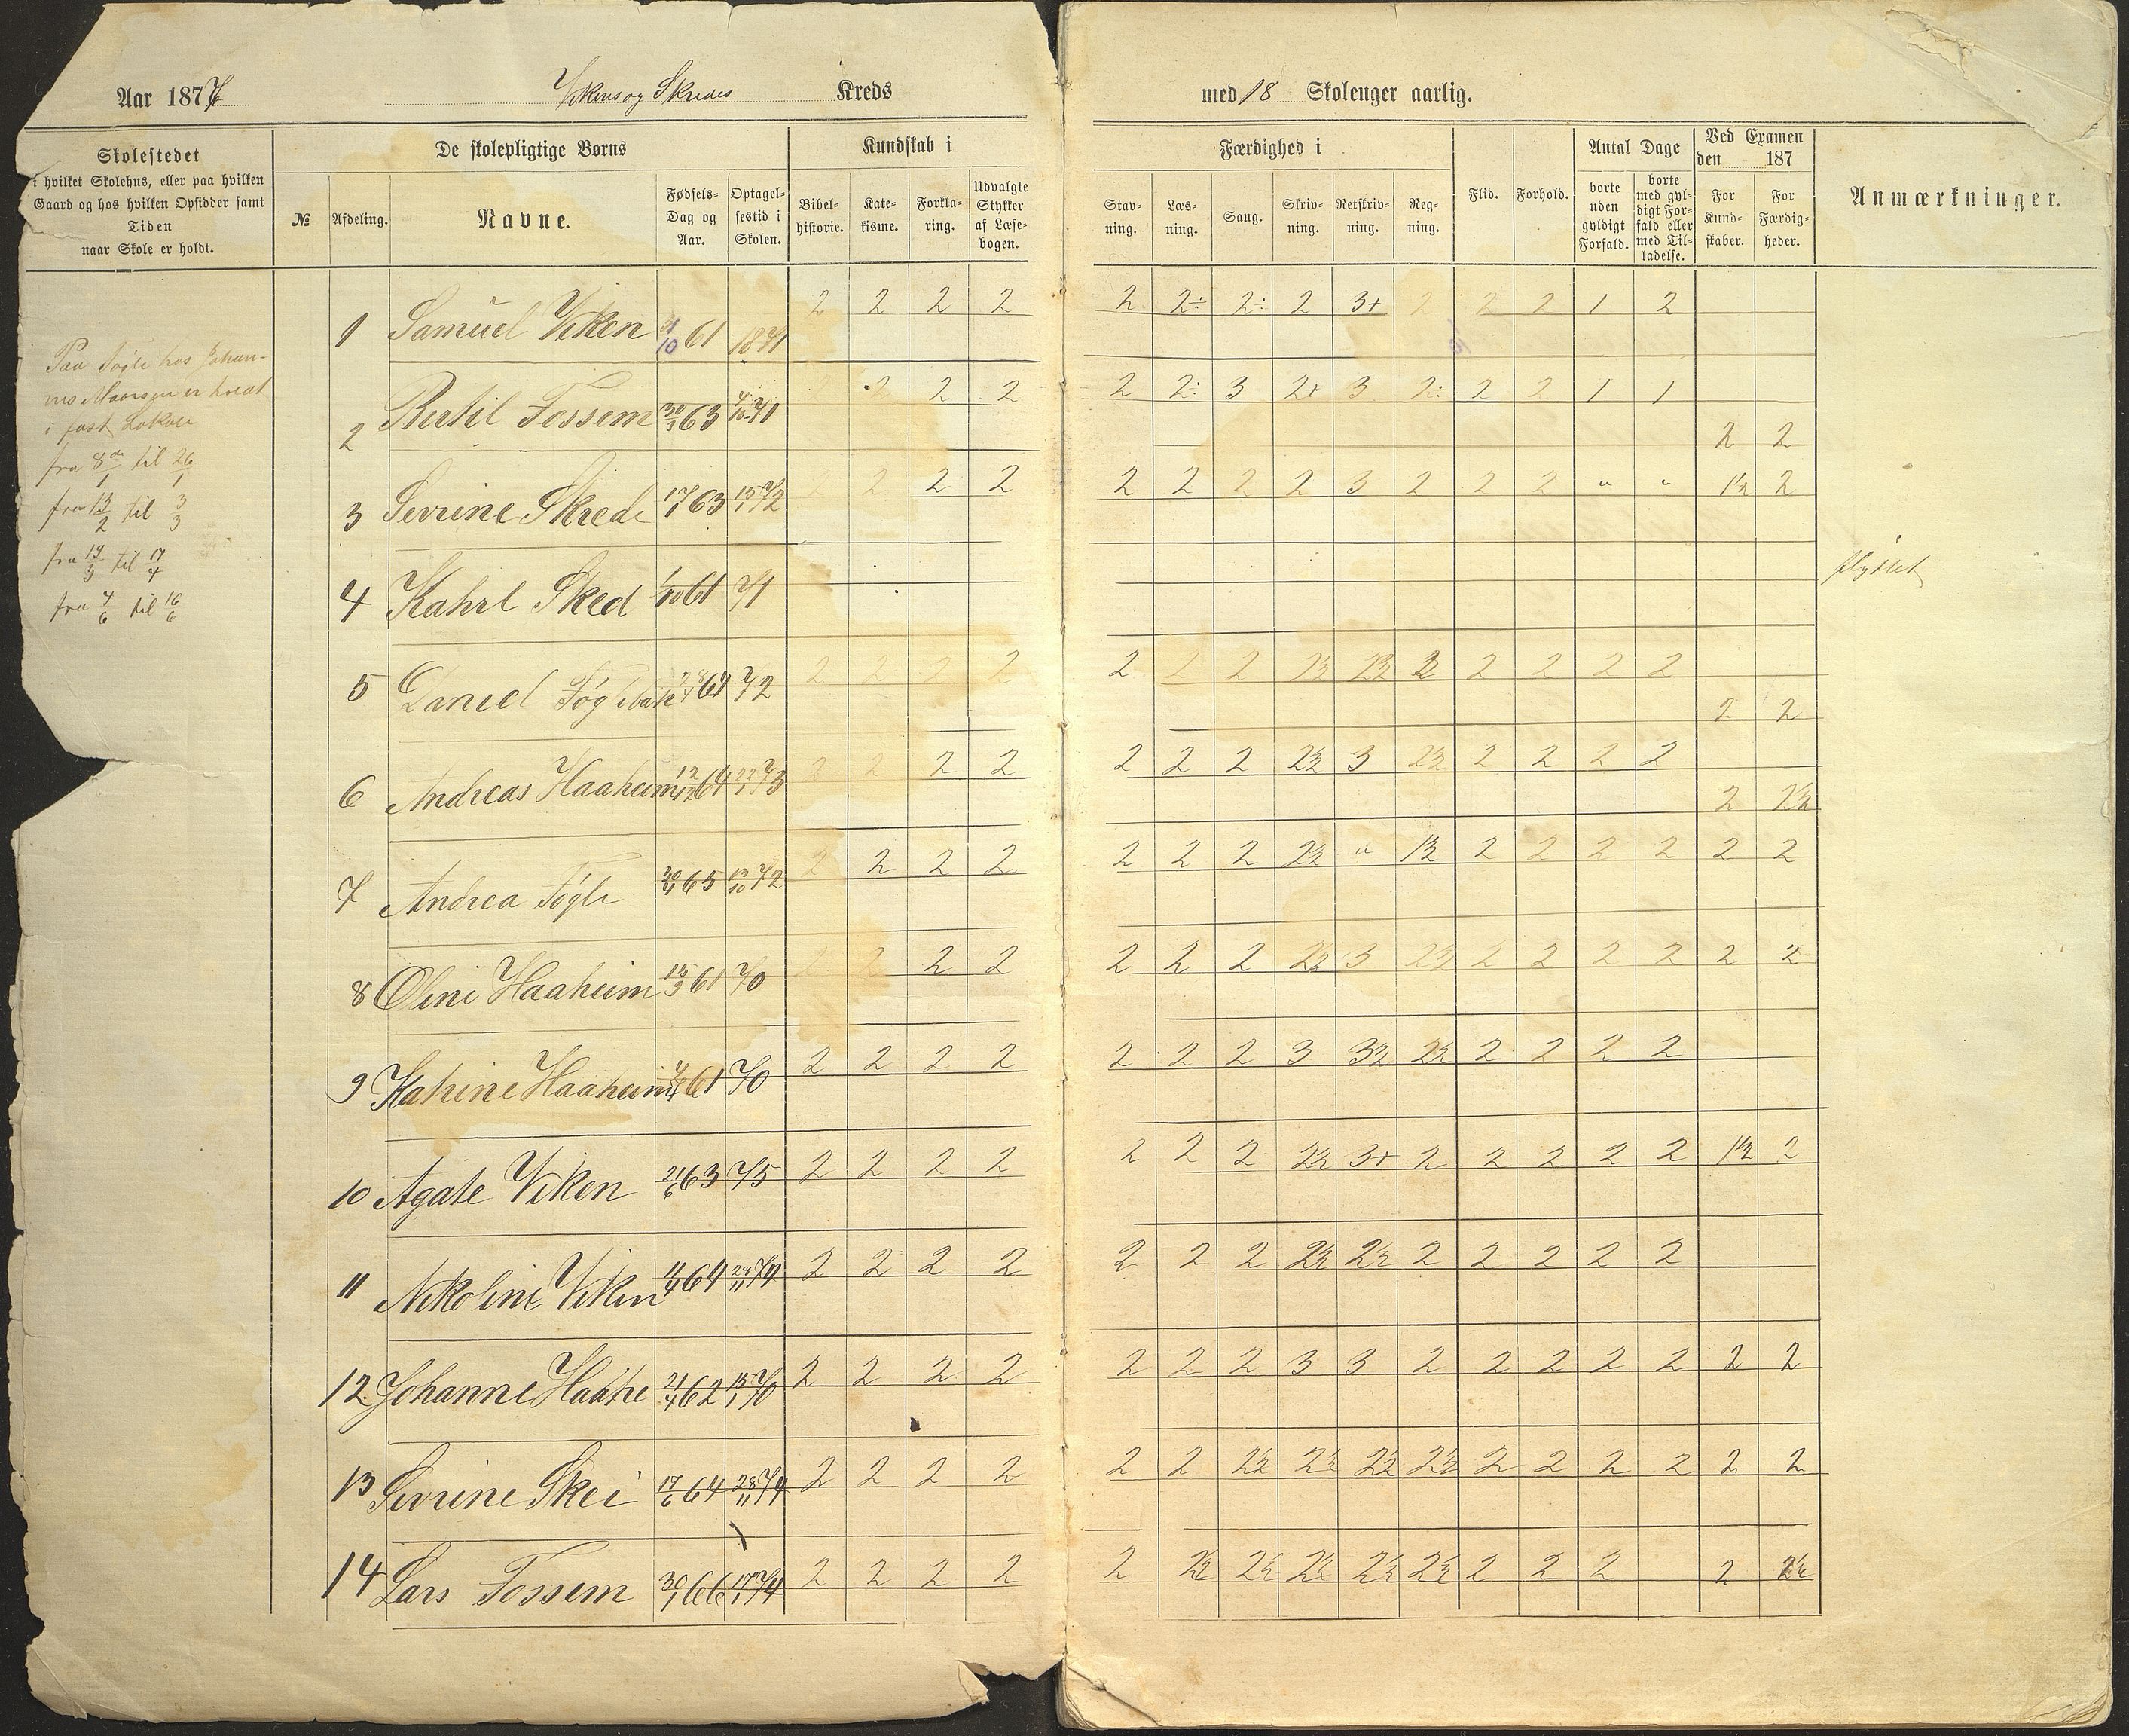 Aar 1877 Vikens og Skredes Kreds med 18 Skoleuger aarlig.
Skolestedet
i hvilket Skolehus, eller paa hvilken
Gaard og hos hvilken Opsidder samt
Tiden
naar Skole er holdt.
№
Afdeling.
De skolepligtige Børns
Navne.
Fødsels-
Dag og
Aar.
Optagel-
sestid i
Skolen.
Kundskab i
Bibel-
historie.
Kate-
kisme.
Forkla-
ring.
Udvalgte
Stykker
af Læse-
bogen.
Færdighed i
Stav-
ning.
Læs-
ning.
Sang.
Skriv-
ning.
Retskriv-
ning.
Reg-
ning.
Flid.
Forhold.
Antal Dage
borte
uden
gyldigt
Forfald.
borte
med gyl-
digt For-
fald eller
med Til-
ladelse.
Ved Examen
den 187
For
Kund-
skaber.
For
Færdig-
heder.
Anmærkninger.
Paa Føgle hos Johan-
i fast Lokale
fra 8de/1 til 26/1
fra 13/2 til 3/3
fra 19/3 til 17/4
fra 7/6 til 16/6
1 Samuel Viken 31/10 61 1871 2 2 2 2 2 2÷ 2÷ 2 3+ 2 2 2 1 2
2 Bertil Fossem 30/1 63 71 2 2 2 2 2÷ 3 2+ 3 2÷ 2 2 1 1 2 2
3 Sevrine Skrede 17/1 63 15/1 72 2 2 2 2 2 2 2 2 3 2 2 2 " " 1½ 2
4 Kahrl Sked 1/10 61 71 flyttet
5 Daniel 64 72 2 2 2 2 2 2 2 2½ 2½ 2 2 2 2 2 2 2
6 Andreas Haaheim 12/12 64 73 2 2 2 2 2 2 2 2½ 3 2½ 2 2 2 2 2 1½
7 Andrea Føgle 30/4 65 13/10 72 2 2 2 2 2 2 2 2½ " 1½ 2 2 2 2 2 2
8 Oline Haaheim 15/3 61 70 2 2 2 2 2 2 2 2½ 3 2½ 2 2 2 2 2 2
9 Katrine Haaheim 61 70 2 2 2 2 2 2 2 3 3½ 2½ 2 2 2 2
10 Agate Viken 21/6 63 75 2 2 2 2 2 2 2 2½ 3+ 2 2 2 2 2 1½ 2
11 Nikoline Viken 11/4 64 28/11 74 2 2 2 2 2 2 2 2½ 2½ 2 2 2 2 2
12 Johanne Haahe 21/4 62 15/1 70 2 2 2 2 2 2 2 3 3 2 2 2 2 2 2 2
13 Sevrine Skei 17/6 64 28/11 74 2 2 2 2 2 2 2½ 2½ 2½ 2½ 2 2 2 2 2 2
14 Lars Fossem 30/1 66 17/1 74 2 2 2 2 2 2½ 2½ 2½ 2½ 2½ 2 2 2 2 2½